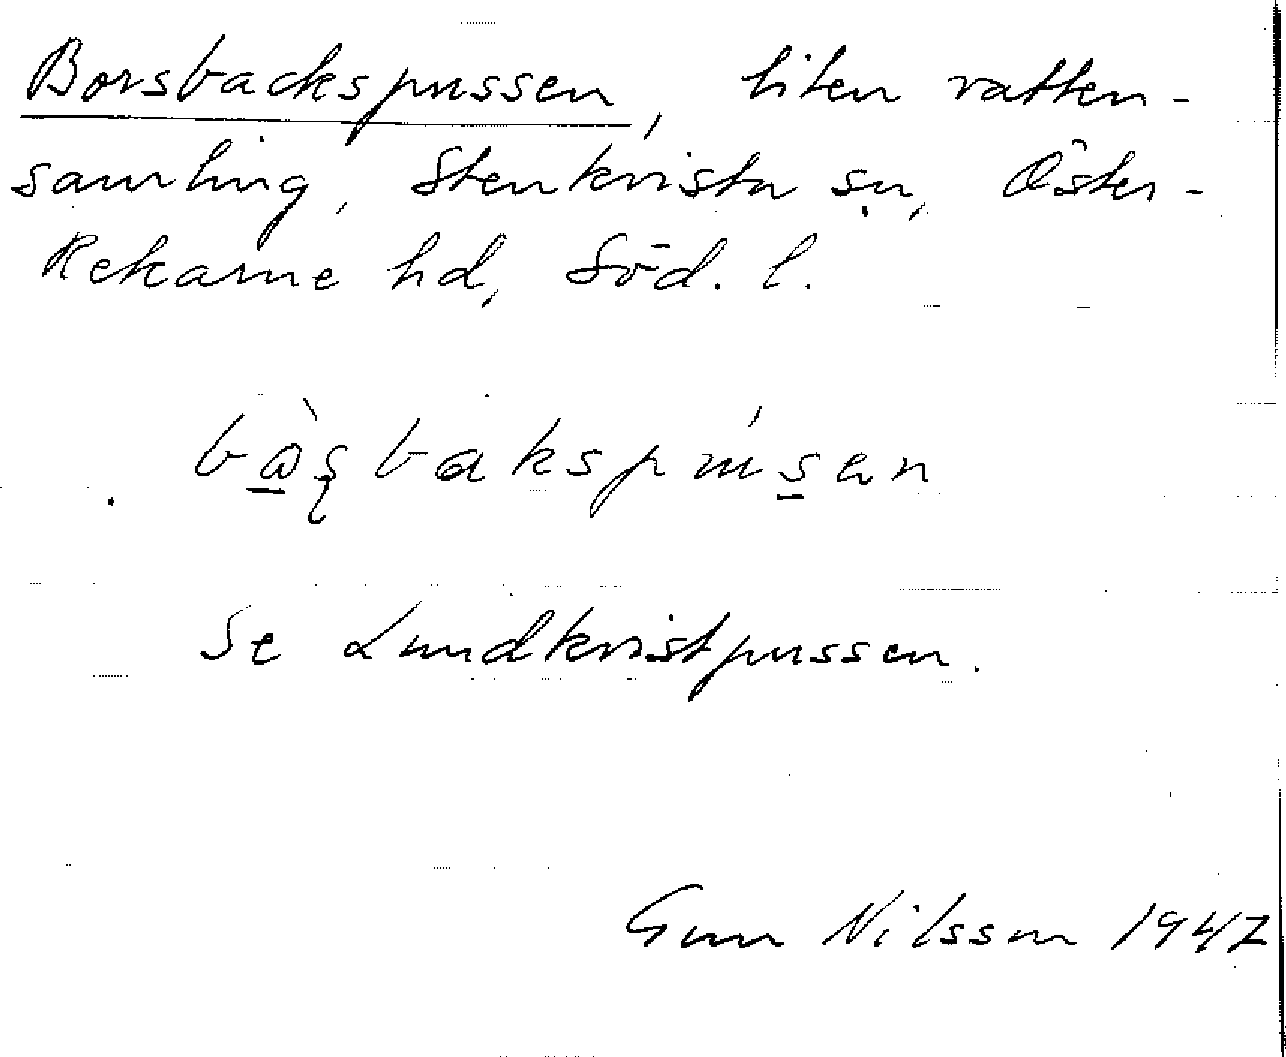 Borsbackspussen, liten vatten-
samling, Stenkvista sn, Öster-
Rekarne hd, Söd. l.
bà̱ʂbakspús̱en
Se Lundkvistpussen.
Gun Nilsson 1947